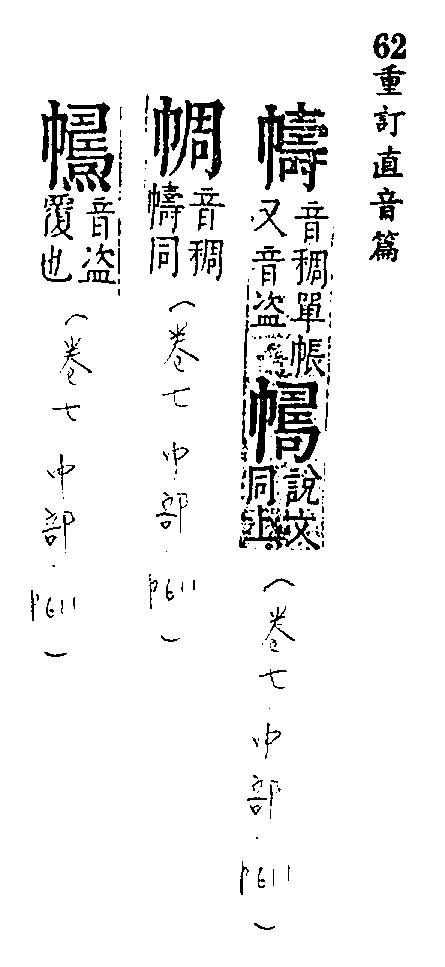 62重訂直音篇
幬音稠單帳又音盜
說文同上（卷七 巾部．P611）
㡞音稠幬同（卷七 巾部．P611）
音盜覆也（卷七 巾部．P611）